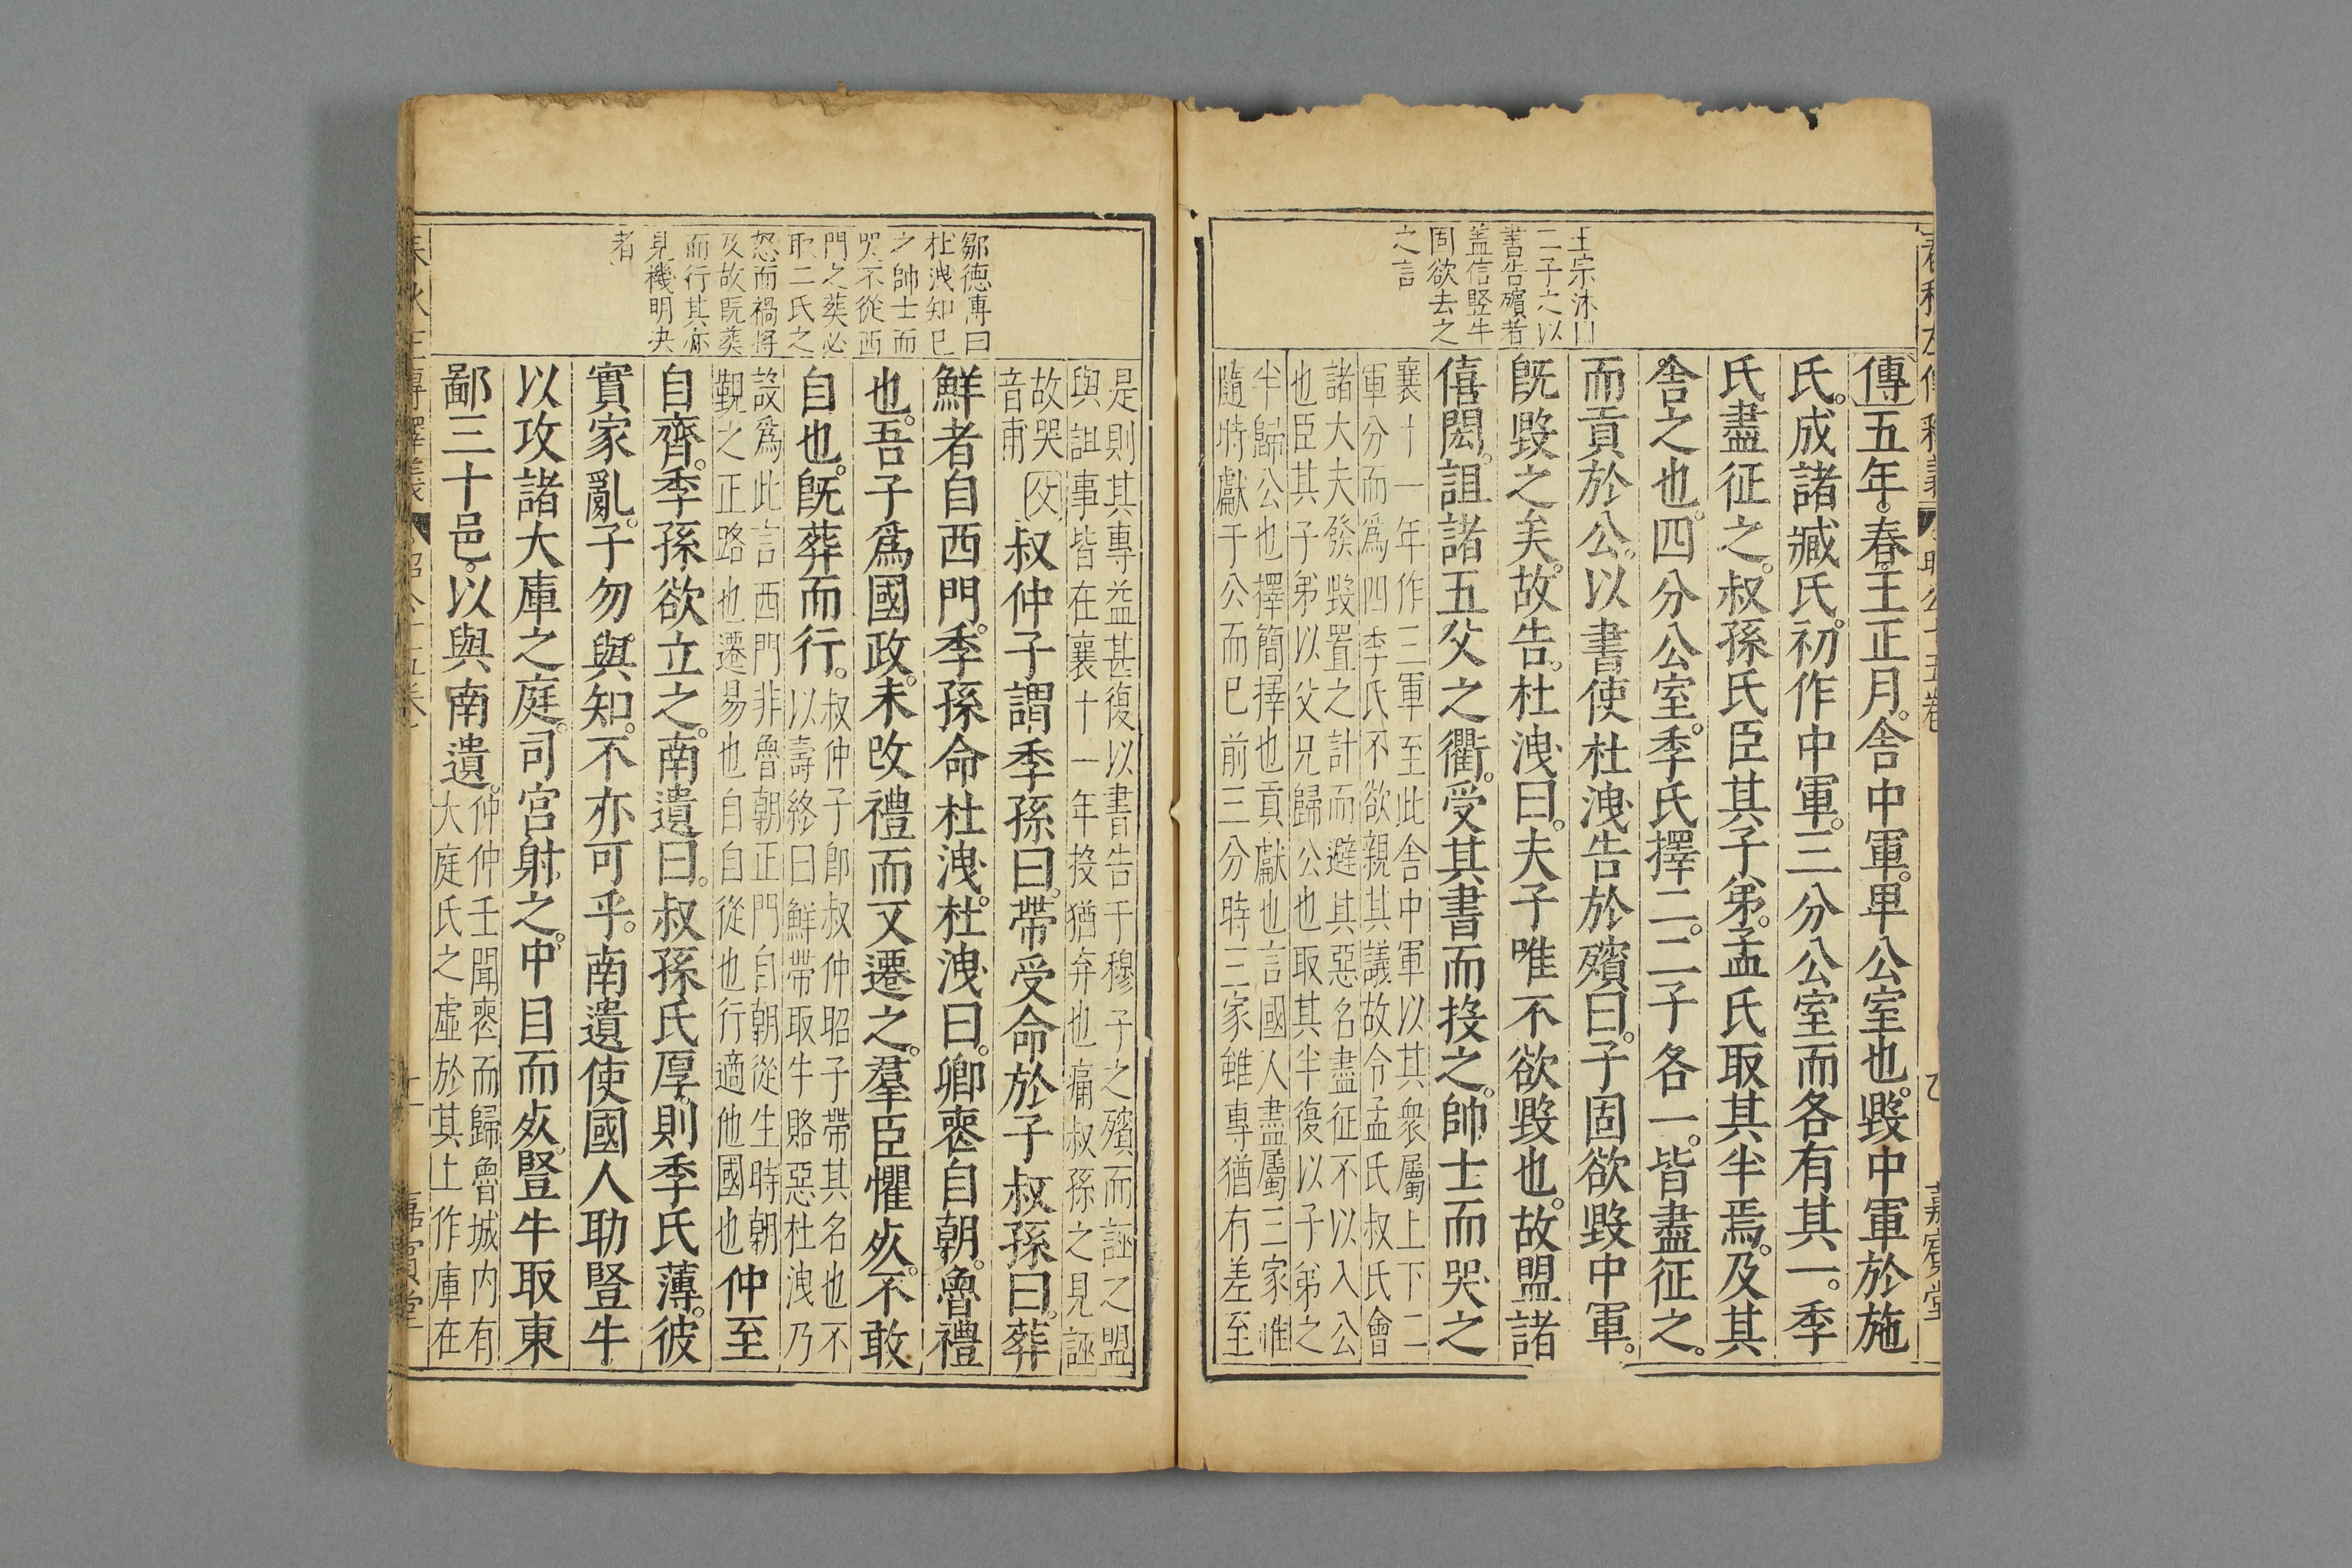 王宗沐曰
二子之以
書告殯者
蓋信豎牛
固欲去之
之言
傳五年。春。王正月。舍中軍。卑公室也。毀中軍於施
氏。成諸臧氏。初作中軍。三分公室而各有其一。季
氏盡征之。叔孫氏臣其子弟。孟氏取其半焉。及其
舍之也。四分公室。季氏擇二。二子各一。皆盡征之。
而貢於公。以書使杜洩告於殯曰。子固欲毀中軍。
旣毀之矣。故告。杜洩曰。夫子唯不欲毀也。故盟諸
僖閎。詛諸五父之衢。受其書而投之。帥士而哭之
襄十一年作三軍至此舍中軍以其衆屬上下二
軍分而爲四季氏不欲親其議故令孟氏叔氏會
諸大夫發毀置之計而避其惡名盡征不以入公
也臣其子弟以父兄歸公也取其半復以子弟之
半歸公也擇簡擇也貢獻也言國人盡屬三家惟
隨時獻于公而已前三分時三家雖專猶有差至
鄒德溥曰
杜洩知已
之帥士而
哭不從西
門之葬必
取二氏之
怒而禍將
及故旣葬
而行其亦
見機明决
者
是則其專益甚復以書告于穆子之殯而誣之盟
與詛事皆在襄十一年投猶弃也痛叔孫之見誣
故哭
音甫
父
叔仲子謂季孫曰。帶受命於子叔孫曰。葬
鮮者自西門。季孫命杜洩。杜洩曰。卿喪自朝。魯禮
也。吾子爲國政。未改禮而又遷之。羣臣懼死。不敢
自也。旣葬而行。
叔仲子卽叔仲昭子帶其名也不
以壽終曰鮮帶取牛賂惡杜洩乃
設爲此言西門非魯朝正門自朝從生時朝
覲之正路也遷易也自自從也行適他國也
仲至
自齊。季孫欲立之。南遺曰。叔孫氏厚。則季氏薄。彼
實家亂。子勿與知。不亦可乎。南遺使國人助豎牛
以攻諸大庫之庭。司宮射之。中目而死。豎牛取東
鄙三十邑。以與南遺。
仲仲壬聞喪而歸魯城内有
大庭氏之虛於其上作庫在
嘉賓堂